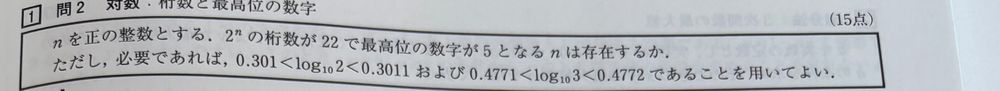 1 問2 対数:桁数と最高位の数字 (15点)
nを正の整数とする.2ⁿの桁数が22で最高位の数字が5となるnは存在するか.
ただし,必要であれば,0.301<log₁₀2<0.3011および0.4771<log₁₀3<0.4772であることを用いてよい.